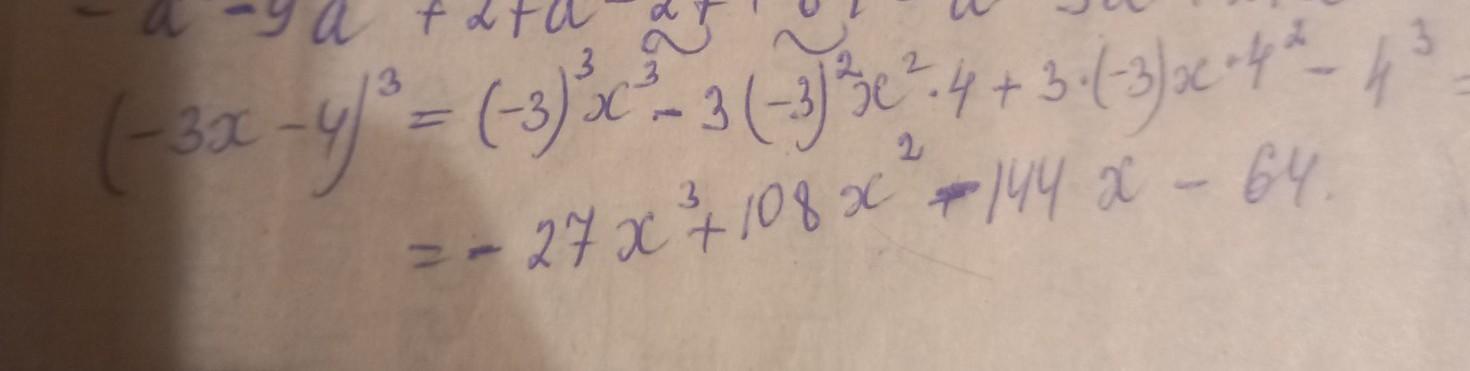 (-3x - 4)³ = (-3)³x³ - 3(-3)²x²·4 + 3·(-3)x·4² - 4³ =
= - 27x³ + 108x² - 144x - 64.